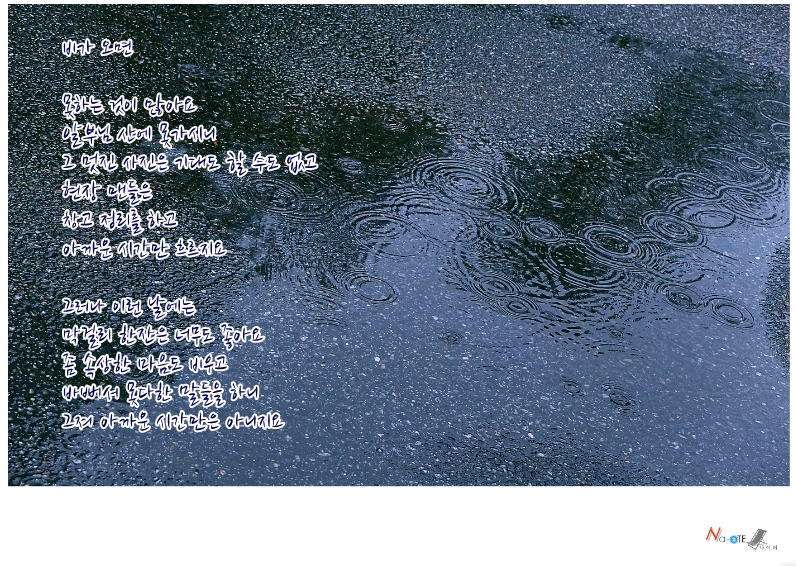 비가 오면
못하는 것이 많아요
알부남 산에 못가시니
그 멋진 사진은 기대도 할 수도 없고
현장 맨들은
창고 정리를 하고
아까운 시간만 흐르지요
그러나 이런 날에는
막걸리 한잔은 너무도 좋아요
좀 속상한 마음도 비우고
바뻐서 못다한 말들을 하니
그저 아까운 시간만은 아니지요